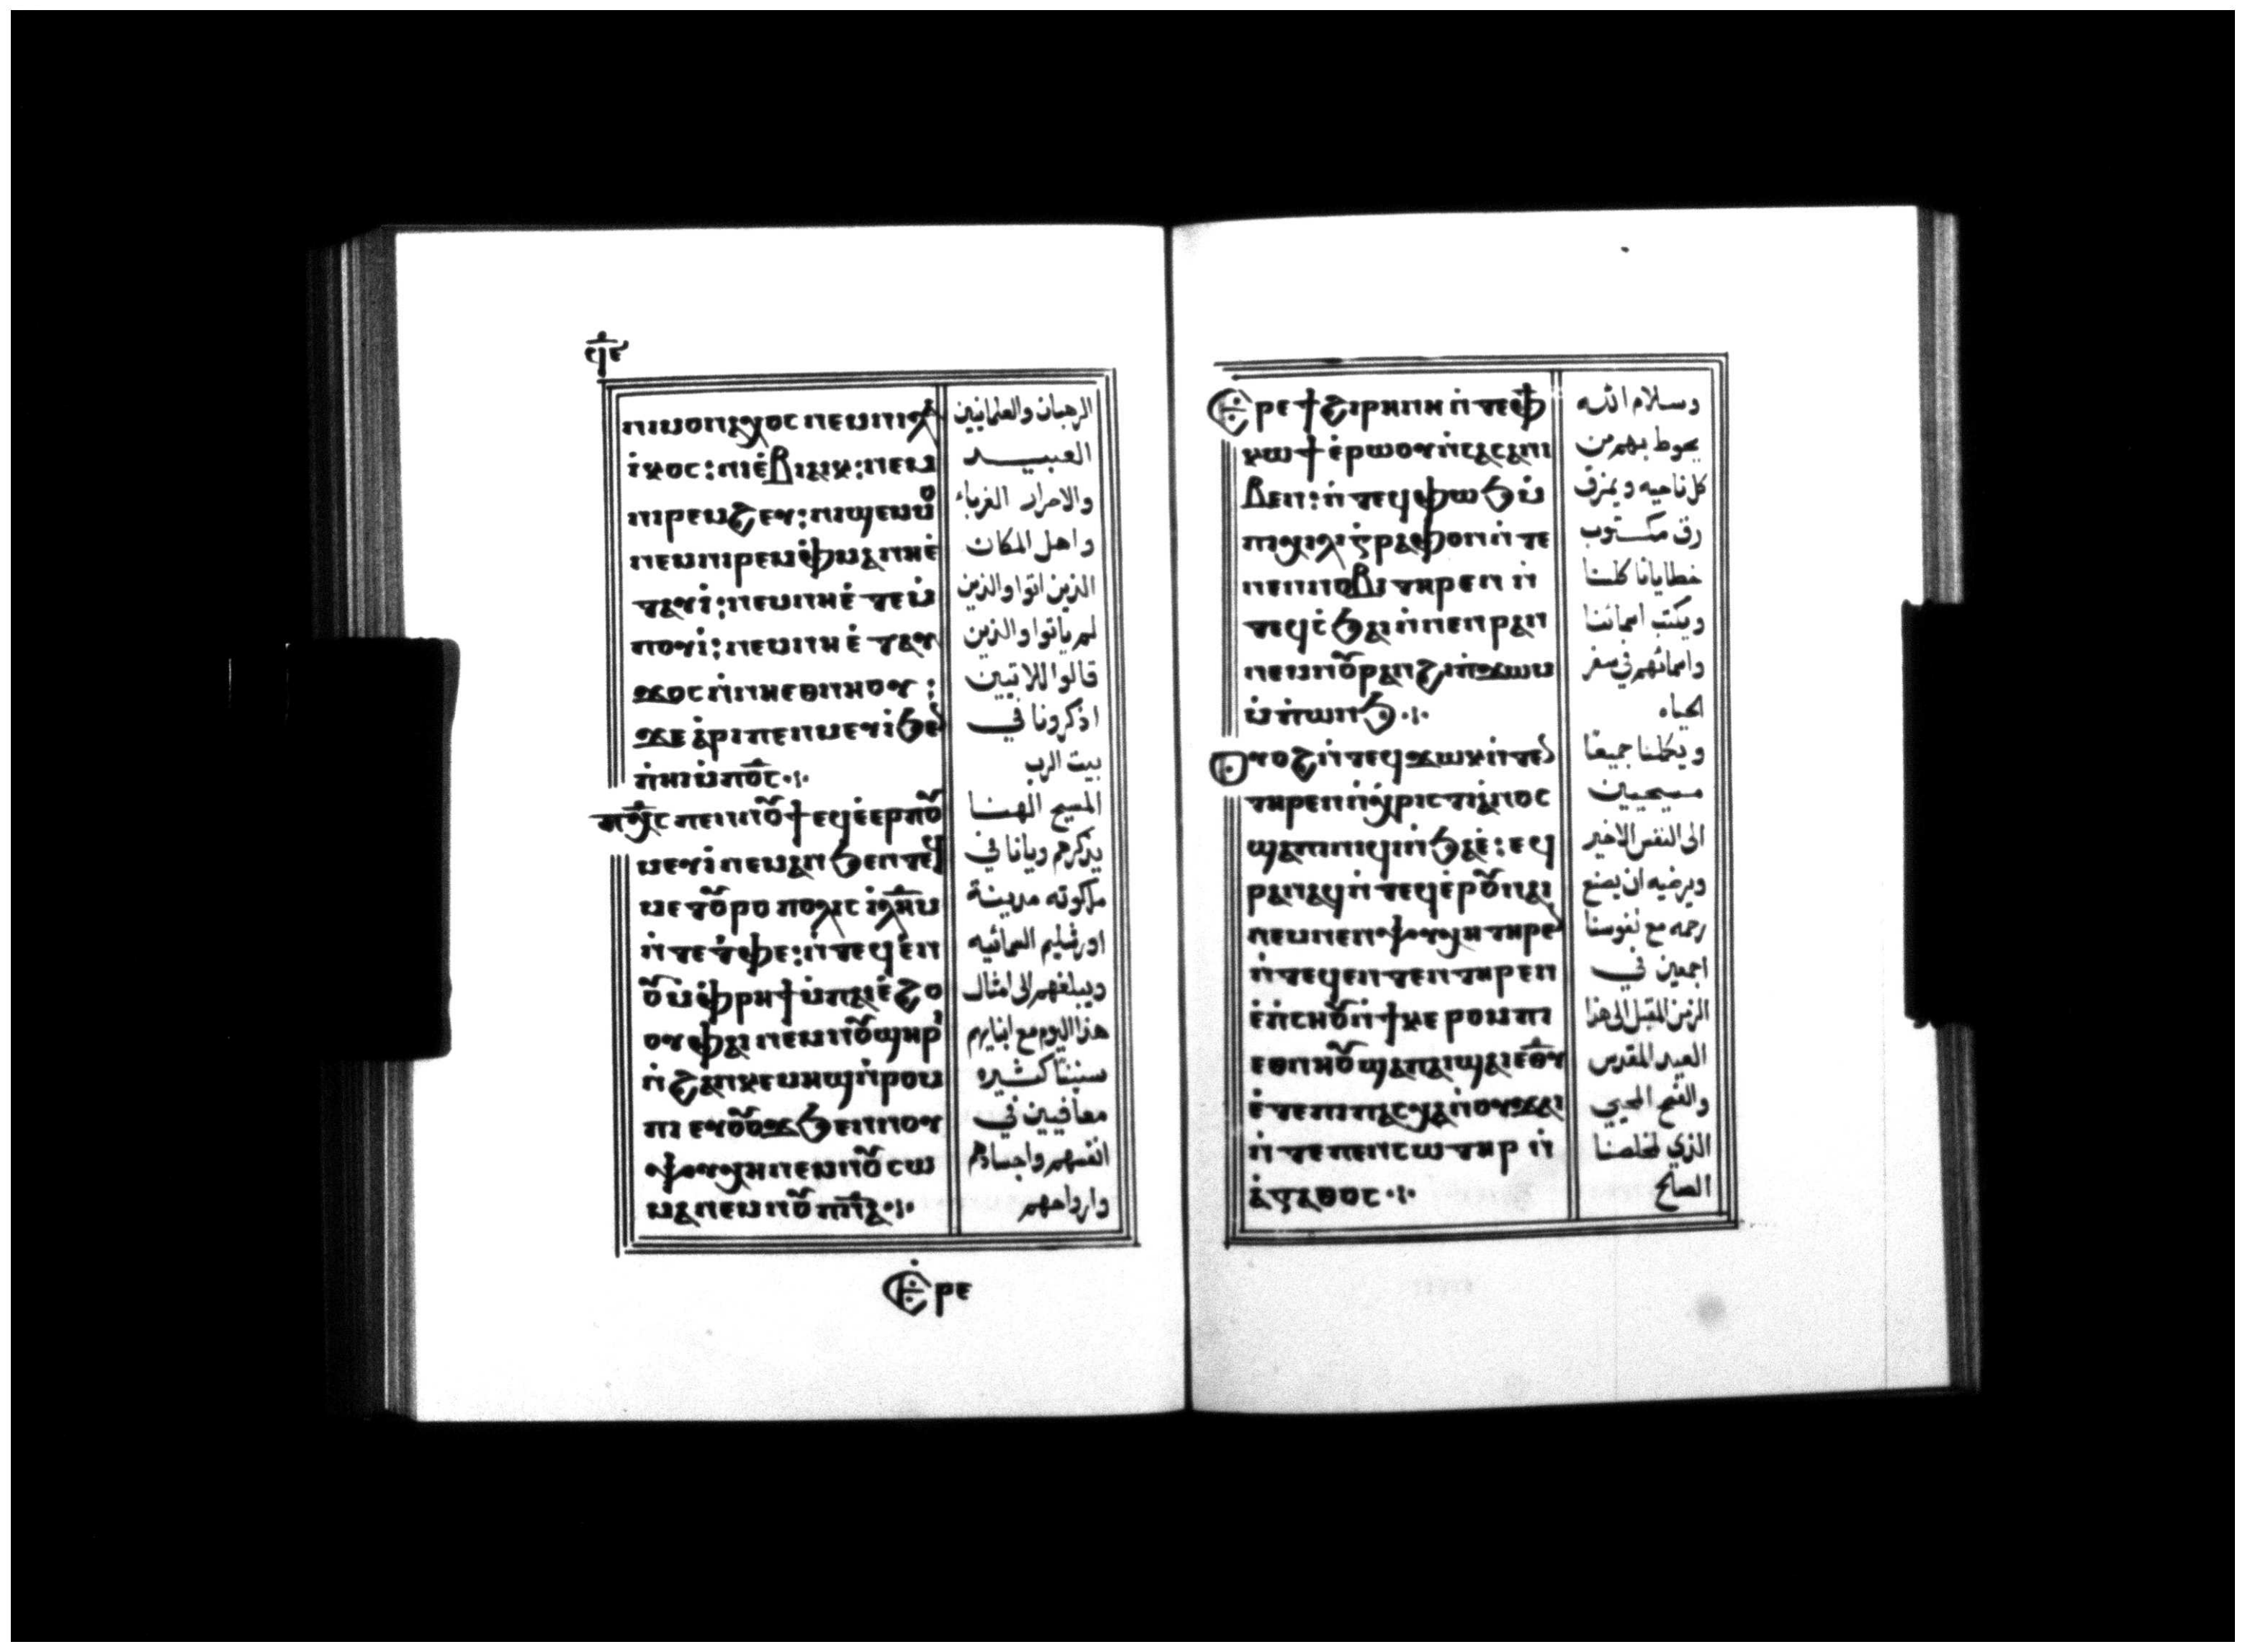 ϥ̄ⲉ
ⲛⲓⲙⲟⲛⲁⲭⲟⲥ ⲛⲉⲙ ⲛⲓⲗⲁ
ⲓ̀ⲕⲟⲥ: ⲛⲓⲉ̀ⲃⲓⲁⲓⲕ: ⲛⲉⲙ
ⲛⲓⲣⲉⲙϩⲉⲩ: ⲛⲓϣⲉⲙⲙⲟ
ⲛⲉⲙ ⲛⲓⲣⲉⲙⲙ̀ⲫⲙⲁ ⲛⲏⲉ̀
ⲧⲁⲩⲓ̀: ⲛⲉⲙ ⲛⲏⲉ̀ ⲧⲉⲙ
ⲡⲟⲩⲓ̀: ⲛⲉⲙ ⲛⲏ ⲉ̀ ⲧⲁⲩ
ϫⲟⲥ ⲛ̀ⲛⲏⲉⲑⲛⲏⲟⲩ:
ϫⲉ ⲁ̀ⲣⲓⲡⲉⲛⲙⲉⲩⲓ̀ ϧⲉⲛ
ⲡ̀ⲏⲓ ⲙ̀ⲡⲟ̅ⲥ̅ ·ⲓ·
ⲡⲭ̅ⲥ̅ ⲡⲉⲛⲛⲟⲩϯ ⲉϥⲉ̀ⲉⲣⲡⲟⲩ
ⲙⲉⲩⲓ̀ ⲛⲉⲙⲁⲛ ϧⲉⲛ ⲧⲉϥ
ⲙⲉⲧⲟⲩⲣⲟ ⲡⲟⲗⲓⲥ ⲓⲗ̅ⲏ̅ⲙ
ⲛ̀ⲧⲉ ⲧ̀ⲫⲉ: ⲛ̀ⲧⲉϥⲉⲛ
ⲟⲩ ⲙ̀ⲫ̀ⲣⲏϯ ⲛ̀ⲡⲁⲓⲉ̀ϩⲟ
ⲟⲩ ⲫⲁⲓ ⲛⲉⲙ ⲛⲟⲩϣⲏⲣ
ⲛ̀ϩⲁⲛⲕⲉⲙⲏϣ ⲛ̀ⲣⲟⲙ
ⲡⲓ ⲉⲩⲟⲩⲟϫ ϧⲉⲛⲛⲟⲩ
ⲯⲩⲭⲏ ⲛⲉⲙ ⲛⲟⲩⲥⲱ
ⲙⲁ ⲛⲉⲙ ⲛⲟⲩⲡ̅ⲛ̅ⲁ̅ ·ⲓ·
الرهبان والعلمانيين
العبيد
والاحرار الغرباء
واهل المكان
الذين اتوا والذين
لم ياتوا والذين
قالوا للاتيين
اذكرونا في
بيت الرب
المسيح الهنا
يذكرهم ويانا في
ملكوته مدينة
اورشليم السمائيه
ويبلغهم الى امثال
هذا اليوم مع ابنايهم
سنينا كثيره
معافيين في
انفسهم واجسادهم
وارواحهم
Ⲉⲣⲉ
Ⲉⲣⲉ ϯϩⲓⲣⲏⲛⲏ ⲛ̀ⲧⲉ ⲫϯ
ⲕⲱϯ ⲉ̀ⲣⲱⲟⲩ ⲛ̀ⲥⲁⲥⲁ ⲛⲓ
ⲃⲉⲛ: ⲛ̀ⲧⲉϥⲫⲱϧ ⲙ̀
ⲡⲓⲭⲓⲣⲟⲅⲣⲁⲫⲟⲛ ⲛ̀ⲧⲉ
ⲛⲉⲛⲛⲟⲃⲓ ⲧⲏⲣⲉⲛ ⲛ̀
ⲧⲉϥⲥ̀ϧⲁⲓ ⲛ̀ⲛⲉⲛⲣⲁⲛ
ⲛⲉⲙ ⲛⲟⲩⲣⲁⲛ ϩⲓ ⲡ̀ϫⲱⲙ
ⲙ̀ⲡ̀ⲱⲛϧ ·ⲓ·
Ⲟⲩⲟϩ ⲛ̀ⲧⲉϥϫⲱⲕ ⲛ̀ⲧⲉⲛ
ⲧⲏⲣⲉⲛ ⲛ̀ⲭⲣⲓⲥⲧⲓⲁⲛⲟⲥ
ϣⲁ ⲡⲓⲛⲓϥⲓ ⲛ̀ϧⲁⲉ̀: ⲉϥ
ⲣⲁⲛⲁϥ ⲛ̀ⲧⲉϥⲉ̀ⲣ ⲟⲩⲛⲁⲓ
ⲛⲉⲙ ⲛⲉⲛⲯⲩⲭⲏ ⲧⲏⲣⲉⲛ
ⲛ̀ⲧⲉϥⲉⲛⲧⲉⲛ ⲧⲏⲣⲉⲛ
ⲉ̀ⲡ̀ⲥⲏⲟⲩ ⲛ̀ϯⲕⲉⲣⲟⲙⲡⲓ
ⲉⲑⲛⲏⲟⲩ ϣⲁ ⲡⲁⲓϣⲁⲓ ⲉⲑⲩ
ⲛ̀ⲧⲉ ⲡⲉⲛⲥⲱⲧⲏⲣ ⲛ̀
ⲁ̀ⲅⲁⲑⲟⲥ ·ⲓ·
وسلام الله
يحوط بهم من
كل ناحيه ويمزق
رق مكتوب
خطايانا كلنا
ويكتب اسمائنا
واسمائهم في سفر
الحياه
ويكملنا جميعا
مسيحيين
الى النفس الاخير
ويرضيه ان يصنع
رحمه مع نفوسنا
اجمعين في
الزمن المقبل الى هذا
العيد المقدس
والفصح المحيي
الذي لمخلصنا
الصالح